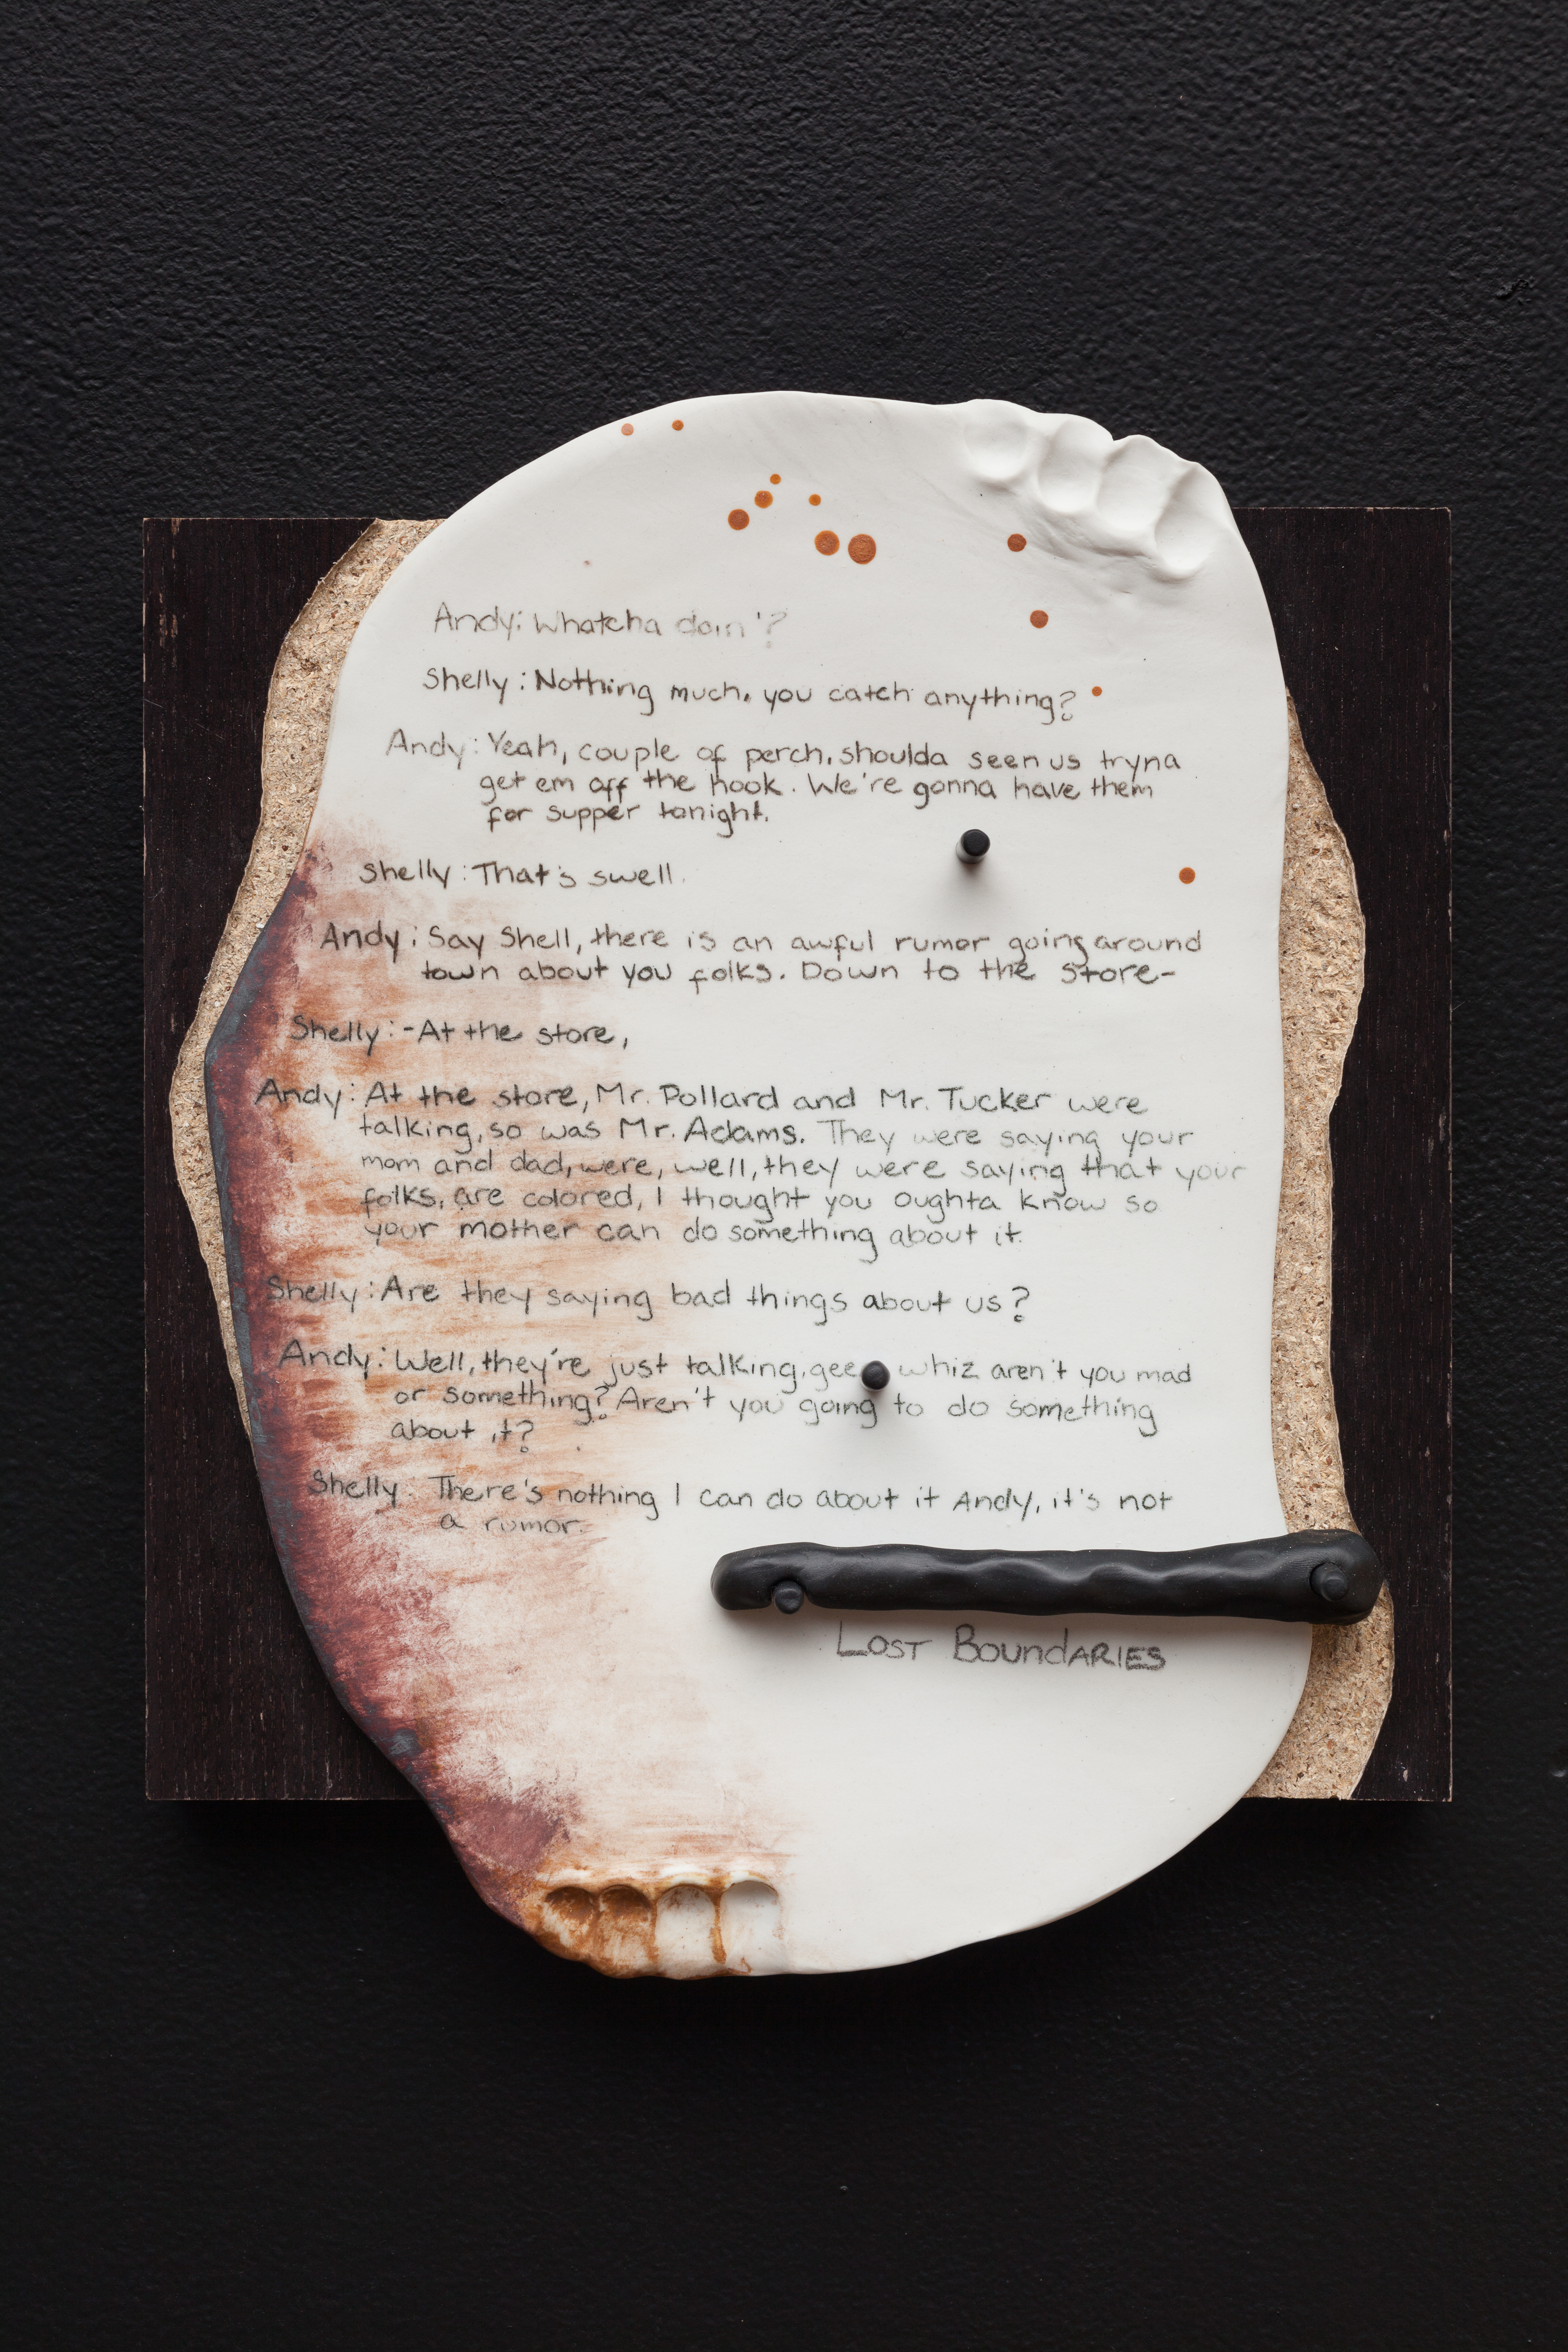 Andy: Whatcha doin'?
Shelly: Nothing much, you catch anything?
Andy: Yeah, couple of perch, shoulda seen us tryna
get em off the hook. We're gonna have them
for supper tonight.
Shelly: That's swell.
Andy: Say Shell, there is an awful rumor going around
town about you folks. Down to the store-
Shelly: -At the store,
Andy: At the store, Mr. Pollard and Mr. Tucker were
talking, so was Mr. Adams. They were saying your
mom and dad, were, well, they were saying that your
folks, are colored, I thought you oughta know so
your mother can do something about it.
Shelly: Are they saying bad things about us?
Andy: Well, they're just talking, gee whiz aren't you mad
or something? Aren't you going to do something
about it?
Shelly: There's nothing I can do about it Andy, it's not
a rumor.
LOST BoundARIES